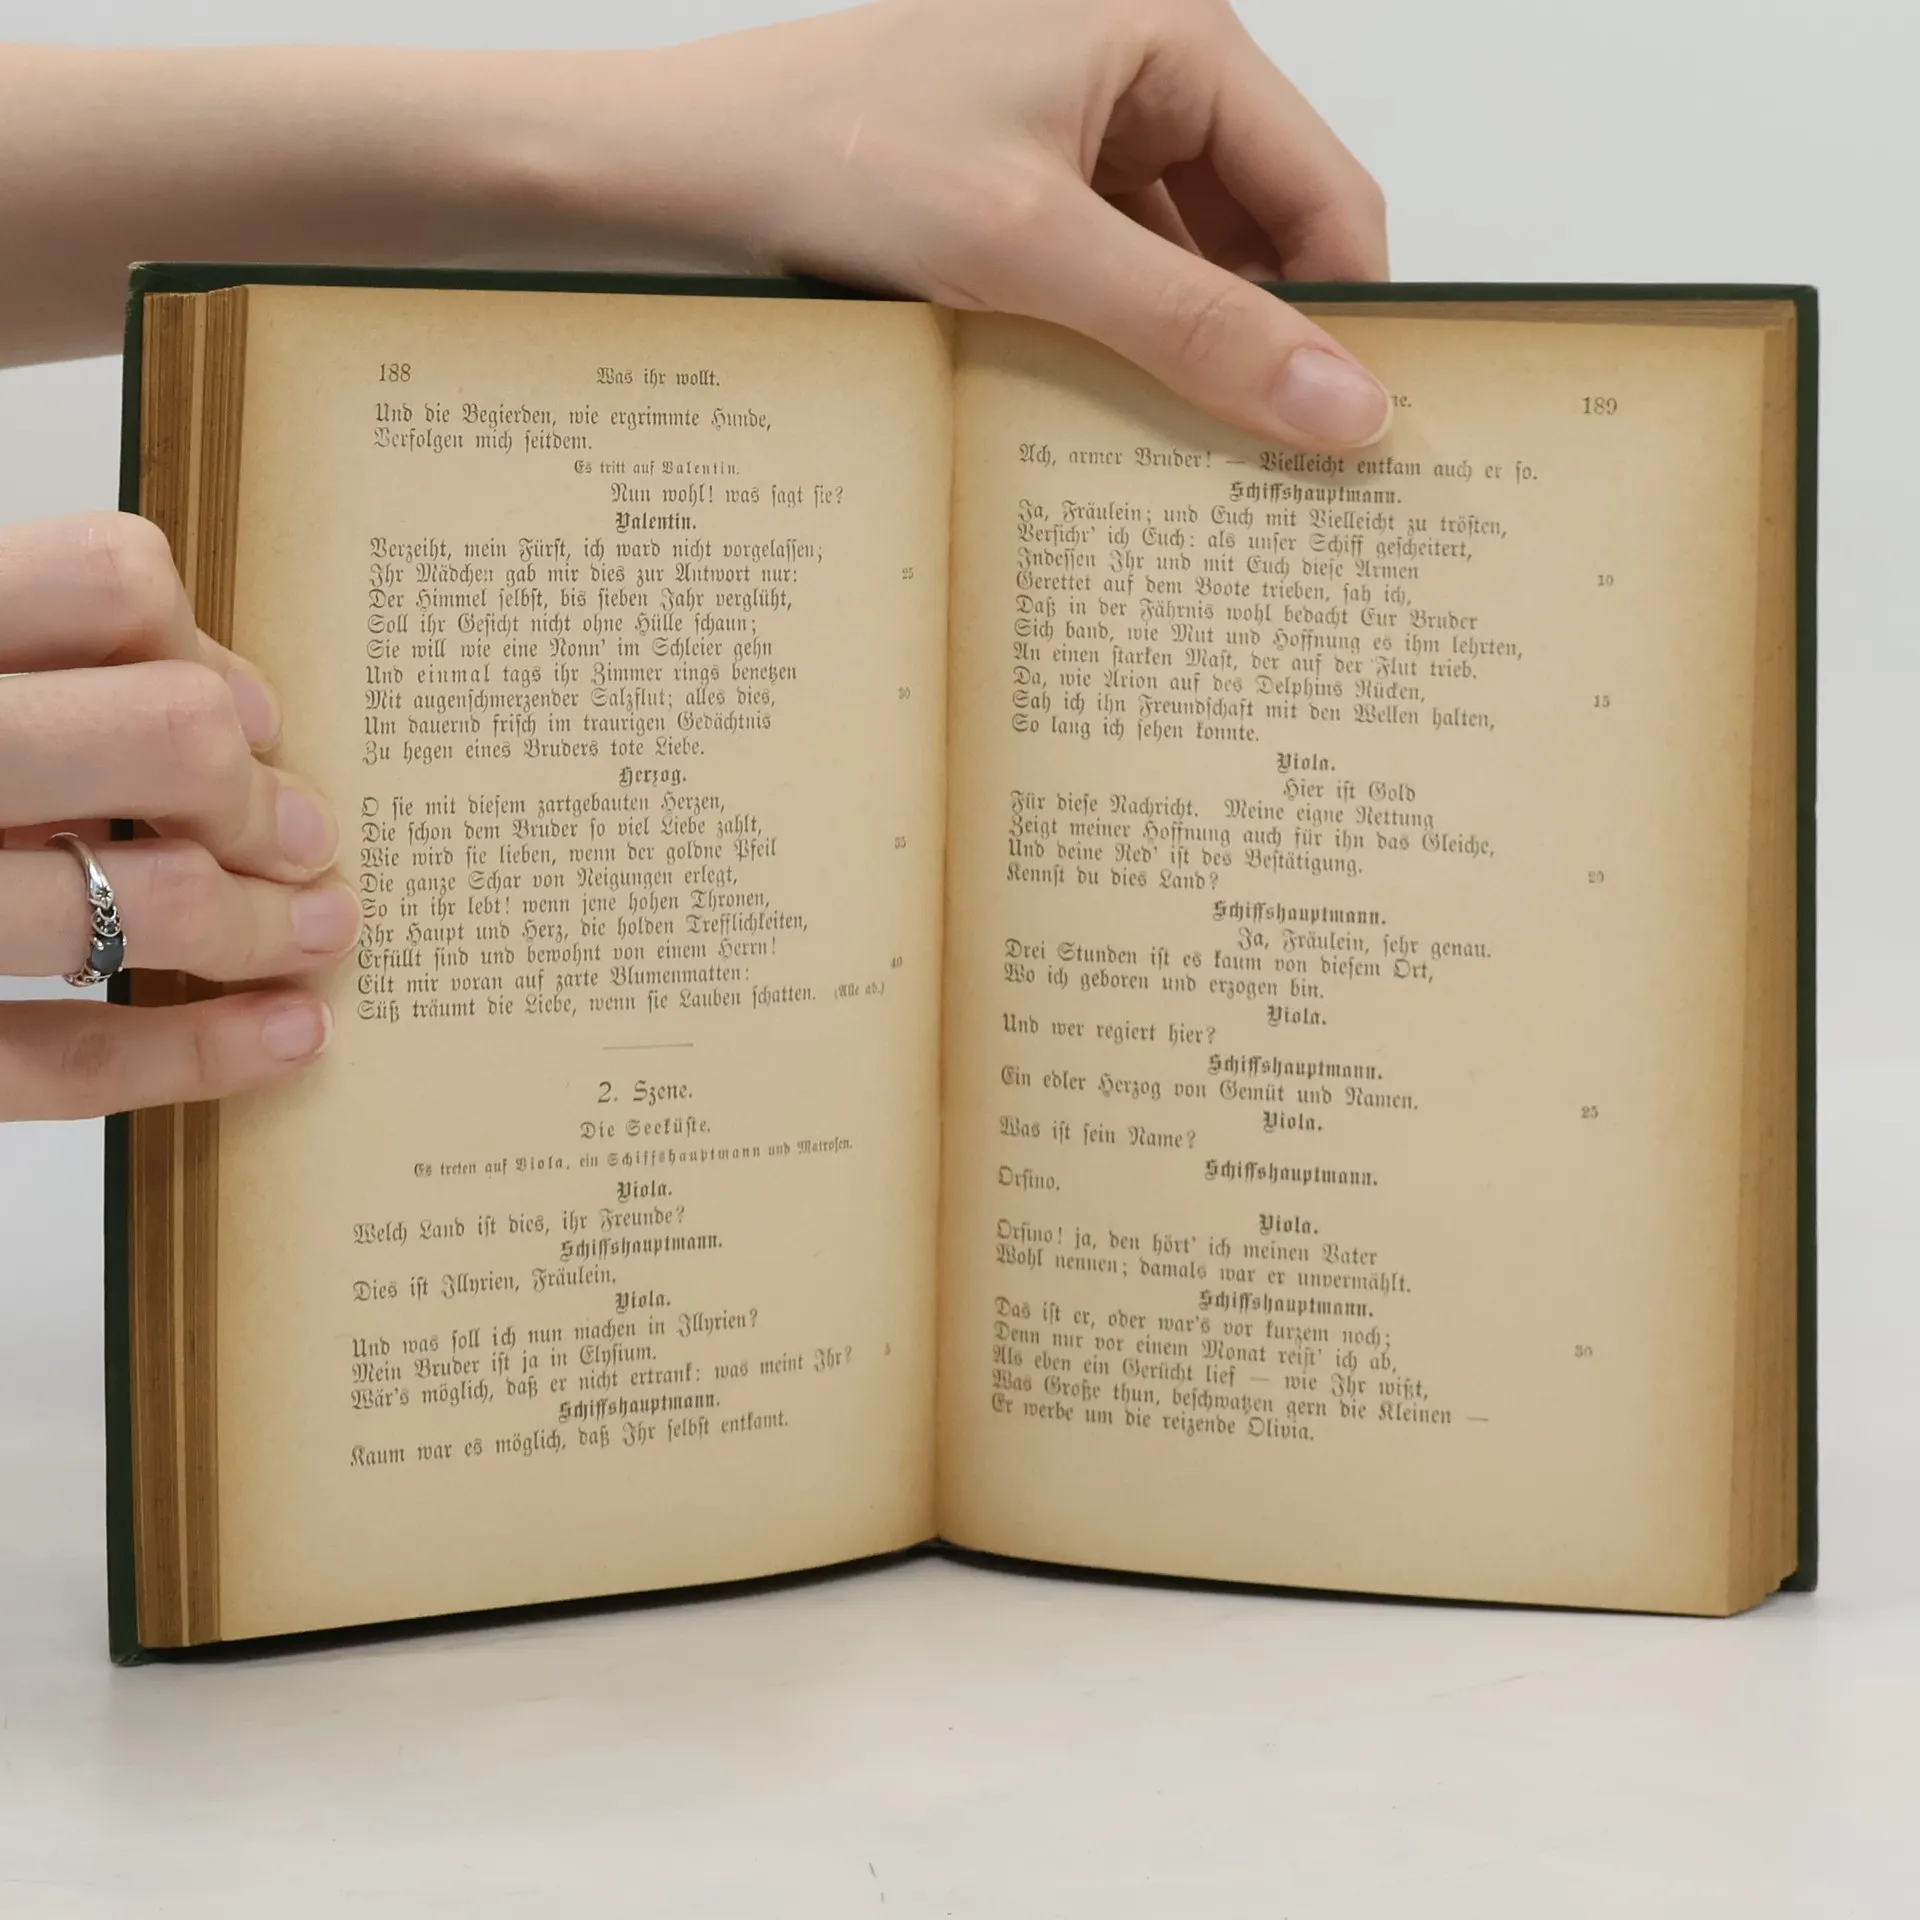 188
Was ihr wollt.
Und die Begierden, wie ergrimmte Hunde,
Verfolgen mich seitdem.
Es tritt auf Valentin.
Nun wohl! was sagt sie?
Valentin.
Verzeiht, mein Fürst, ich ward nicht vorgelassen;
Ihr Mädchen gab mir dies zur Antwort nur: 25
Der Himmel selbst, bis sieben Jahr verglüht,
Soll ihr Gesicht nicht ohne Hülle schaun;
Sie will wie eine Nonn' im Schleier gehn
Und einmal tags ihr Zimmer rings benetzen
Mit augenschmerzender Salzflut; alles dies, 30
Um dauernd frisch im traurigen Gedächtnis
Zu hegen eines Bruders tote Liebe.
Herzog.
O sie mit diesem zartgebauten Herzen,
Die schon dem Bruder so viel Liebe zahlt,
Wie wird sie lieben, wenn der goldne Pfeil 35
Die ganze Schar von Neigungen erlegt,
So in ihr lebt! wenn jene hohen Thronen,
Ihr Haupt und Herz, die holden Trefflichkeiten,
Erfüllt sind und bewohnt von einem Herrn!
Eilt mir voran auf zarte Blumenmatten: 40
Süß träumt die Liebe, wenn sie Lauben schatten. (Alle ab.)
2. Szene.
Die Seeküste.
Es treten auf Viola, ein Schiffshauptmann und Matrosen.
Viola.
Welch Land ist dies, ihr Freunde?
Schiffshauptmann.
Dies ist Illyrien, Fräulein.
Viola.
Und was soll ich nun machen in Illyrien?
Mein Bruder ist ja in Elysium.
Wär's möglich, daß er nicht ertrank: was meint Ihr? 5
Schiffshauptmann.
Kaum war es möglich, daß Ihr selbst entkamt.
189
Ach, armer Bruder! — Vielleicht entkam auch er so.
Schiffshauptmann.
Ja, Fräulein; und Euch mit Vielleicht zu trösten,
Versichr' ich Euch: als unser Schiff gescheitert,
Indessen Ihr und mit Euch diese Armen
Gerettet auf dem Boote trieben, sah ich, 10
Daß in der Fährnis wohl bedacht Eur Bruder
Sich band, wie Mut und Hoffnung es ihm lehrten,
An einen starken Mast, der auf der Flut trieb.
Da, wie Arion auf des Delphins Rücken,
Sah ich ihn Freundschaft mit den Wellen halten, 15
So lang ich sehen konnte.
Viola.
Hier ist Gold
Für diese Nachricht. Meine eigne Rettung
Zeigt meiner Hoffnung auch für ihn das Gleiche,
Und deine Red' ist des Bestätigung.
Kennst du dies Land? 20
Schiffshauptmann.
Ja, Fräulein, sehr genau.
Drei Stunden ist es kaum von diesem Ort,
Wo ich geboren und erzogen bin.
Viola.
Und wer regiert hier?
Schiffshauptmann.
Ein edler Herzog von Gemüt und Namen.
Viola. 25
Was ist sein Name?
Schiffshauptmann.
Orsino.
Viola.
Orsino! ja, den hört' ich meinen Vater
Wohl nennen; damals war er unvermählt.
Schiffshauptmann.
Das ist er, oder war's vor kurzem noch;
Denn nur vor einem Monat reist' ich ab, 30
Als eben ein Gerücht lief — wie Ihr wißt,
Was Große thun, beschwatzen gern die Kleinen —
Er werbe um die reizende Olivia.